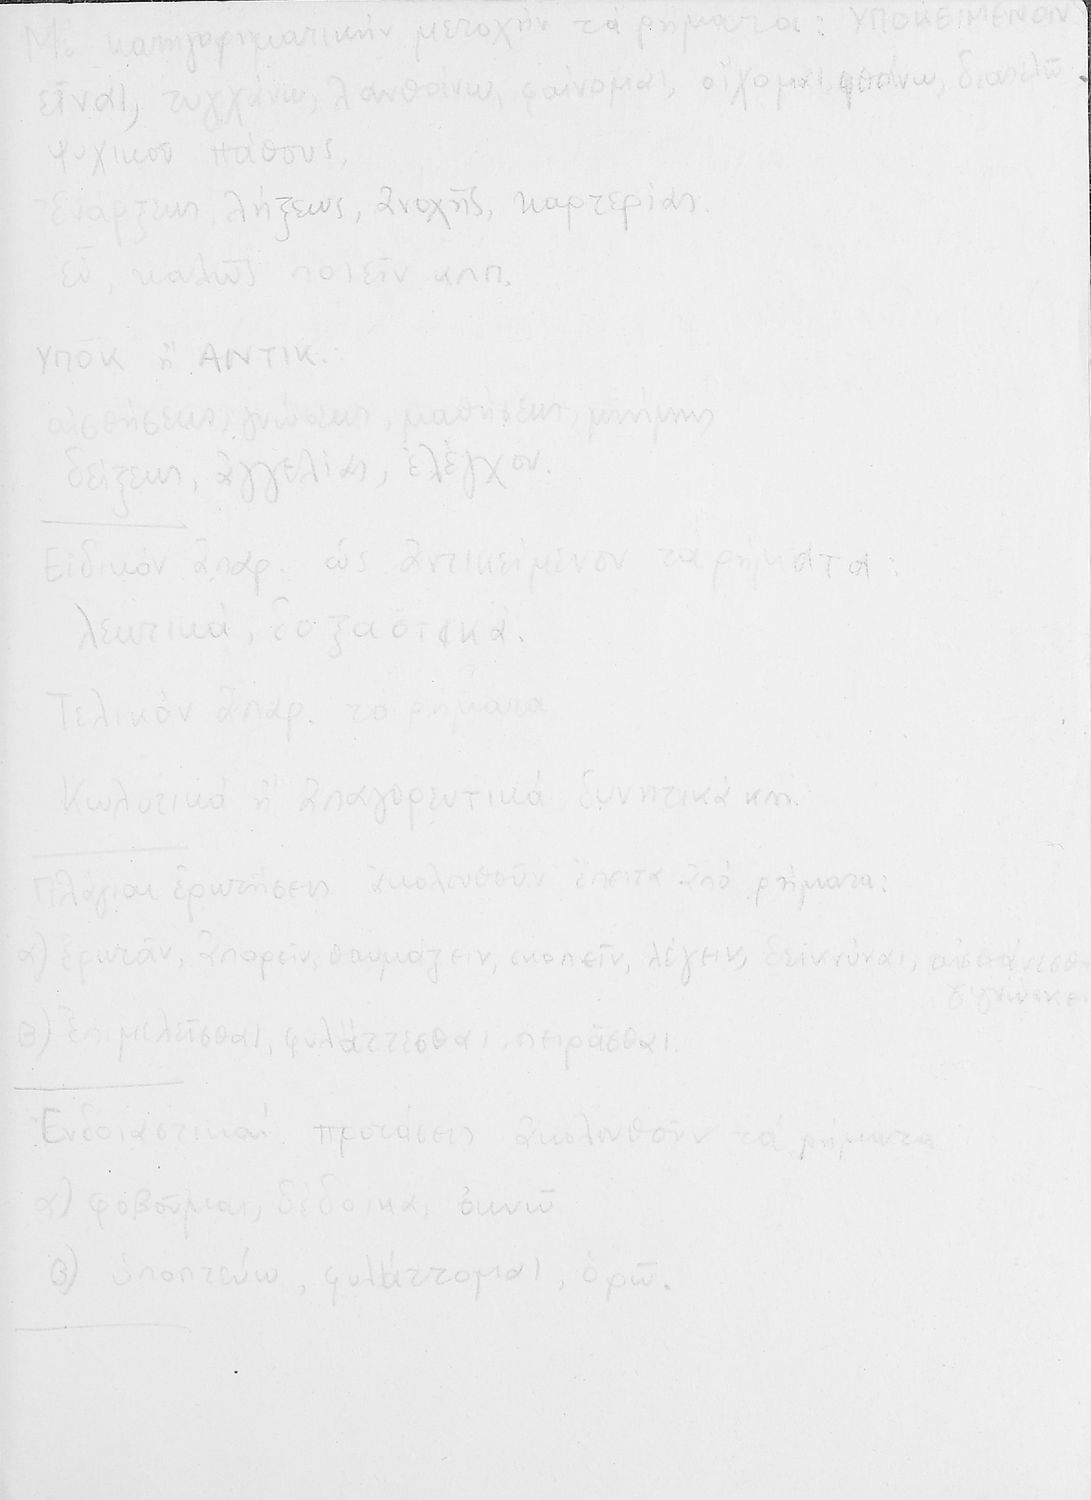 Μὲ κατηγορηματικὴν μετοχὴν τὰ ρήματα: ΥΠΟΚΕΙΜΕΝΟΝ
εἶναι, τυγχάνω, λανθάνω, φαίνομαι, οἴχομαι, φθάνω, διατελῶ
ψυχικοῦ πάθους,
ἐνάρξεως, λήξεως, ἀνοχῆς, καρτερίας.
εὖ, καλῶς ποιεῖν κλπ.
ΥΠΟΚ ἢ ΑΝΤΙΚ.
αἰσθήσεως, γνώσεως, μαθήσεως, μνήμης
δείξεως, ἀγγελίας, ἐλέγχου.
Εἰδικόν ἀπαρ. ὡς ἀντικείμενον τὰ ρήματα:
λεκτικά, δοξαστικά.
Τελικὸν ἀπαρ. τὰ ρήματα
Κωλυτικά ἢ ἀπαγορευτικά δυνητικά κλπ.
Πλάγιαι ἐρωτήσεις ἀκολουθοῦν ἔπειτα ἀπό ρήματα:
α) ἐρωτᾶν, ἀπορεῖν, θαυμάζειν, σκοπεῖν, λέγειν, δεικνύναι, αἰσθάνεσθ
γιγνώσκει
β) ἐπιμελεῖσθαι, φυλάττεσθαι, πειρᾶσθαι.
Ἐνδοιαστικαί προτάσεις ἀκολουθοῦν τὰ ρήματα
α) φοβοῦμαι, δέδοικα, ὀκνῶ
β) ὑποπτεύω, φυλάττομαι, ὁρῶ.